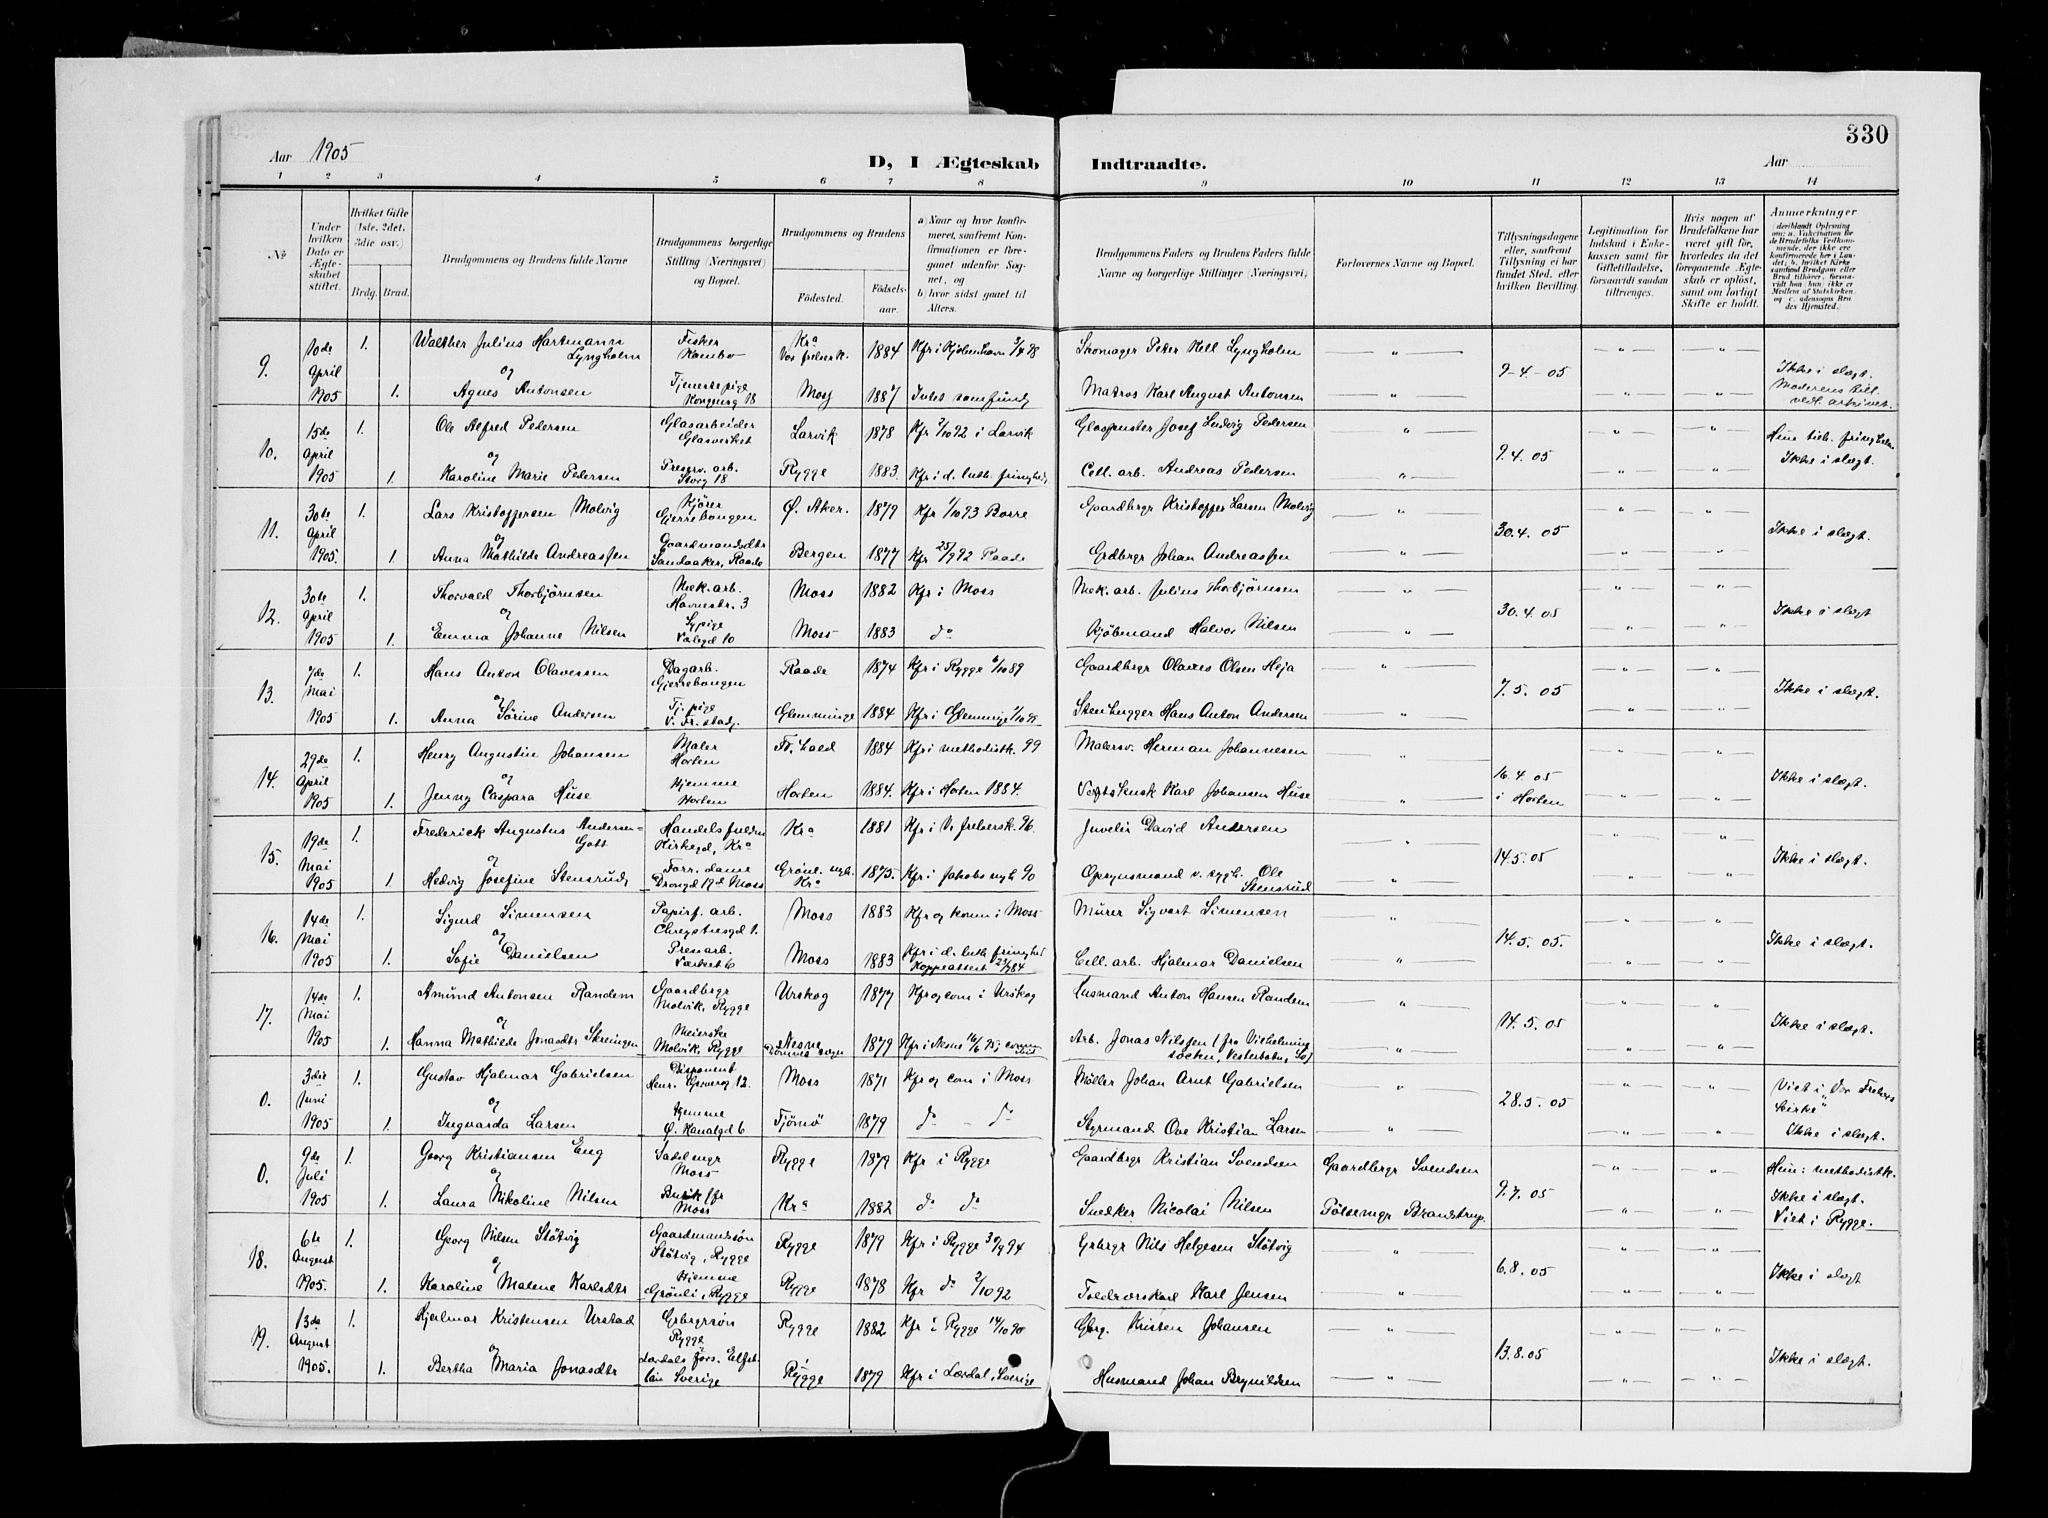 330
Aar 1905
D, I Ægteskab Indtraadte.
Aar
1 2 3 4 5 6 7 8 9 10 11 12 13 14
№
Under hvilken Dato er Ægteskabet stiftet.
Hvilket Gifte (1ste, 2det, 3die osv.)
Brdg. Brud.
Brudgommens og Brudens fulde Navne
Brudgommens borgerlige Stilling (Næringsvei) og Bopæl.
Brudgommens og Brudens
Fødested. Fødselsaar.
a) Naar og hvor konfirmeret, saafremt Konfirmationen er foregaaet udenfor Sognet, og
b) hvor sidst gaaet til Alters.
Brudgommens Faders og Brudens Faders fulde Navne og borgerlige Stillinger (Næringsvei)
Forlovernes Navne og Bopæl.
Tillysningsdagene eller, saafremt Tillysning ei har fundet Sted, efter hvilken Bevilling.
Legitimation for Indskud i Enkekassen samt for Giftetilladelse, forsaavidt saadan tiltrænges.
Hvis nogen af Brudefolkene har været gift før, hvorledes da det foregaaende Ægteskab er opløst, samt om lovligt Skifte er holdt.
Anmerkninger
deriblandt Oplysning om: a. Vakcination for de Brudefolks Vedkommende, der ikke ere konfirmerede her i Landet; b. hvilket Kirkesamfund Brudgom eller Brud tilhører, forsaavidt han (hun) ikke er Medlem af Statskirken og c. udensogns Brudes Hjemsted.
9. 10de April 1905 1. Walther Julius Hartmann Lyngholm Fisker Kambo Kra Vor frelsersk. 1884 Kfr i Kjøbenhavn 3/4 98 Skomager Peter Kell Lyngholm 9-4-05
og
1. Agnes Antonsen Tjenestepige Kongensg 18 Moss 1887 Intet samfund Matros Karl August Antonsen Ikke i slægt. Moderens till. vedl. arkivet.
10. 15de April 1905 1. Ole Alfred Pedersen Glasarbeider Glasverket Larvik 1878 Kfr 2/10 92 i Larvik Glaspuster Josef Ludvig Pedersen 9.4.05
og
1. Karoline Marie Pedersen Preserv. arb. Storg 18 Rygge 1883. Kfr i d. luth. frimgh. Cell. arb. Andreas Pedersen Ikke i slægt.
11. 30te April 1905. 1. Lars Kristoffersen Molvig Kjører Gjerrebougen Ø. Aker. 1879 Kfr 1/10 93 Borre Gaardbrgr Kristoffer Larsen Molvig 30.4.05
og
1. Anna Mathilde Andreassen Gaardmandsdtr Sandaaker, Raade Bergen 1877 Kfr 25/9 92 Raade Grdbrgr Johan Andreassen Ikke i slægt.
12. 30te April 1905 1. Thorvald Thorbjørnsen Mek. arb. Havnestr. 3 Moss 1882 Kfr i Moss Mek. arb. Julius Thorbjørnsen 30.4.05
og
1. Emma Johanne Nilsen Sypige Valegd 10 Moss 1883 do Kjøbmand Halvor Nilsen Ikke i slægt
13. 7de Mai 1905 1. Hans Anton Olavessen Dagarb. Gjerrebougen Raade 1874 Kfr i Rygge 6/10 89 Gaardbrgr Olaves Olsen Heja 7.5.05
og
1. Anna Sørine Andersen Tj. pige V. Fr.stad Glemminge 1884 Kfr i Glemminge 1/10 98 Stenhugger Hans Anton Andersen Ikke i slægt.
14. 29de April 1905 1. Henry Augustin Johansen Maler Horten Fr. hald 1884 Kfr i methodistk. 99 Malersv. Herman Johannesen 16.4.05 i Horten
og
1. Jenny Caspara Huse Hjemme Horten Horten 1884. Kfr i Horten 1884. Karl Johansen Huse Ikke i slægt.
15. 19de Mai 1905 1. Frederick Augustus Andersen-Gott Handelsfuldm Kirkegd, Kra Kra 1881 Kfr i V. frelsersk. 96. Juvelir David Andersen 14.5.05
og
1. Hedvig Josefine Stensrud Forr. dame Drongd 19d Moss Grønl. mgh. Kra 1875. Kfr i Jakobs mgh 90 Opsynsmand v. sygh. Ole Stensrud Ikke i slægt.
16. 14de Mai 1905 1. Sigurd Simensen Papirf. arb. Chrystiesgd 1. Moss 1883 Kfr og kom i Moss Murer Sigvart Simensen 14.5.05.
og
1. Sofie Danielsen Pres arb. Værket 6 Moss 1883 Kfr i d. luth. frimghed Koppeattest 23/9 84 Cell. arb. Hjalmar Danielsen Ikke i slægt.
17. 14de Mai 1905 1. Amund Antonsen Randem Gaardbrgr Molvik, Rygge Urskog 1877 Kfr og com i Urskog Husmand Anton Hansen Randem 14.5.05
og
1. Hanna Mathilde Jonasdtr Skreingen Meierske Molvik, Rygge Nesne Dønnes sogn 1879 Kfr i Nesne 16/6 95, Arb. Jonas Nilssen (fra Vilhelmina socken, Vesterbotn, Sv) Ikke i slægt.
0. 3die Juni 1905 1. Gustav Hjalmar Gabrielsen Disponent Henr. Gernersg 12. Moss 1871 Kfr og com i Moss Møller Johan Arnt Gabrielsen 28.5.05 Viet i "Vor Frelsers Kirke"
og
1. Ingvarda Larsen Hjemme Ø. Kanalgd 6 Tjømø 1879 do - do Styrmand Ove Kristian Larsen Ikke i slægt.
0. 9de Juli 1905 1. Georg Kristiansen Eng Sadelmgr Moss Rygge 1879 Kfr i Rygge Gaardbrgr Kristian Svendsen Gaardbrgr Svendsen 9.7.05 Hun: methodistk.
og
1. Laura Nikoline Nilsen Butikfr Moss Kra 1882 do do Snedker Nicolai Nilsen Pølsemgr Brandstrup. Ikke i slægt. Viet i Rygge.
18. 6te August 1905. 1. Georg Nilsen Støtvig Gaardmandssøn Støtvig, Rygge Rygge 1879 Kfr i Rygge 30/9 94 Grbrgr Nils Helgesen Støtvig 6.8.05
og
1. Karoline Malene Karlsdtr Hjemme Grønli, Rygge Rygge 1878 Kfr do 2/10 92 Karl Jensen Ikke i slægt
19. 13de August 1905. 1. Hjalmar Kristensen Urstad Grbrgrsøn Rygge Rygge 1882 Kfr i Rygge 14/10 90 Gbrg. Kristen Johansen 13.8.05
og
1. Bertha Maria Jonasdtr Lærdals fors. Elfsb. län Sverige Rygge 1879 Kfr i Lærdal, Sverige Husmand Johan Brynildsen Ikke i slægt.